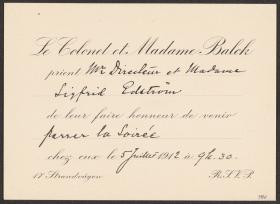 Le Colonel et Madame Balck
prient Mr Directeur et Madame
Sigfrid Edström
de leur faire honneur de venir
passer la Soirée
chez eux le 5 Juillet 1912 à 9 h. 30.
Strandvägen R.S.V.P.